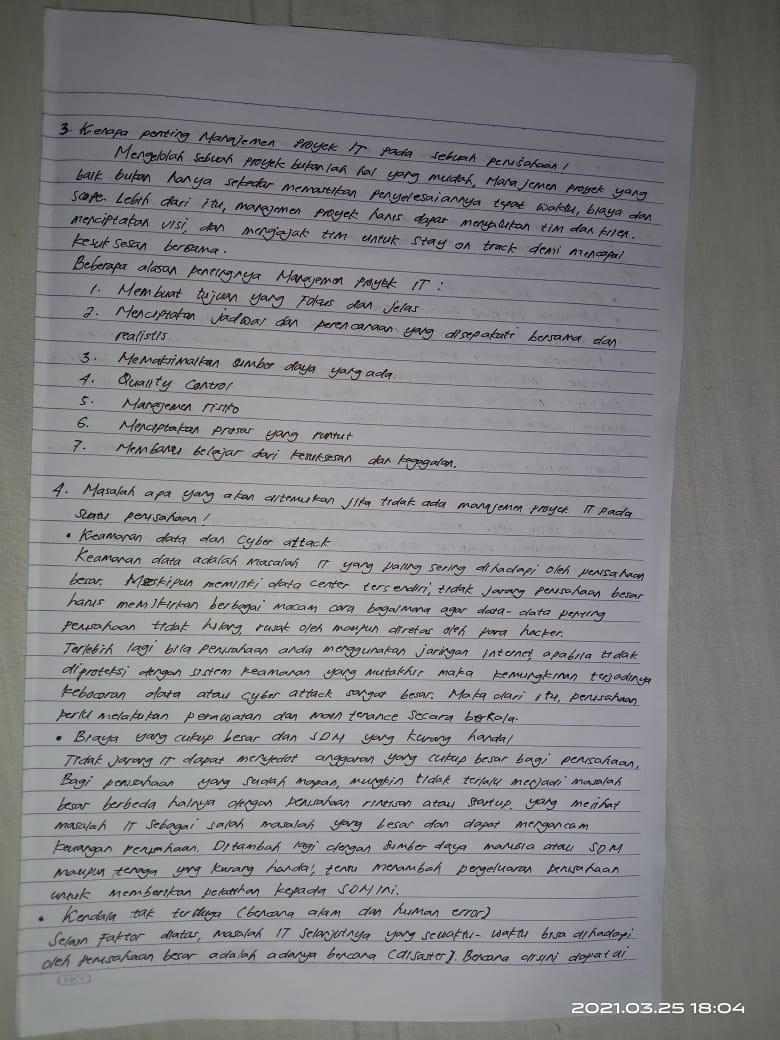 3. Kenapa penting Manajemen Proyek IT pada sebuah perusahaan!
Mengelolah sebuah proyek bukanlah hal yang mudah, Manajemen proyek yang
baik bukan hanya sekedar memastikan penyelesaiannya tepat waktu, biaya dan
scope. Lebih dari itu, manajemen proyek harus dapat menyatukan tim dan klien.
menciptakan visi, dan mengajak tim untuk stay on track demi mencapai
kesuksesan bersama.
Beberapa alasan pentingnya Manajemen proyek IT :
1. Membuat tujuan yang Fokus dan jelas
2. Menciptakan jadwal dan perencanaan yang disepakati bersama dan
realistis
3. Memaksimalkan sumber daya yang ada
4. Quality Control
5. Manajemen risiko
6. Menciptakan proses yang runtut
7. Membantu belajar dari kesuksesan dan kegagalan.
4. Masalah apa yang akan ditemukan jika tidak ada manajemen proyek IT pada
suatu perusahaan!
• Keamanan data dan Cyber attack
Keamanan data adalah masalah IT yang paling sering dihadapi oleh perusahaan
besar. Meskipun memiliki data center tersendiri, tidak jarang perusahaan besar
harus memikirkan berbagai macam cara bagaimana agar data-data penting
perusahaan tidak hilang, rusak oleh maupun diretas oleh para hacker.
Terlebih lagi bila perusahaan anda menggunakan jaringan internet, apabila tidak
diproteksi dengan sistem keamanan yang mutakhir maka kemungkinan terjadinya
kebocoran data atau cyber attack sangat besar. Maka dari itu, perusahaan
perlu melakukan perawatan dan maintenance secara berkala.
• Biaya yang cukup besar dan SDM yang kurang handal
Tidak jarang IT dapat menyedot anggaran yang cukup besar bagi perusahaan.
Bagi perusahaan yang sudah mapan, mungkin tidak terlalu menjadi masalah
besar berbeda halnya dengan perusahaan rintisan atau startup, yang melihat
masalah IT sebagai salah masalah yang besar dan dapat mengancam
keuangan perusahaan. Ditambah lagi dengan sumber daya manusia atau SDM
maupun tenaga yang kurang handal, tentu menambah pengeluaran perusahaan
untuk memberikan pelatihan kepada SDM ini.
• Kendala tak terduga (bencana alam dan human error)
Selain Faktor diatas, masalah IT selanjutnya yang sewaktu-waktu bisa dihadapi
oleh perusahaan besar adalah adanya bencana (disaster). Bencana disini dapat di
2021.03.25 18:04